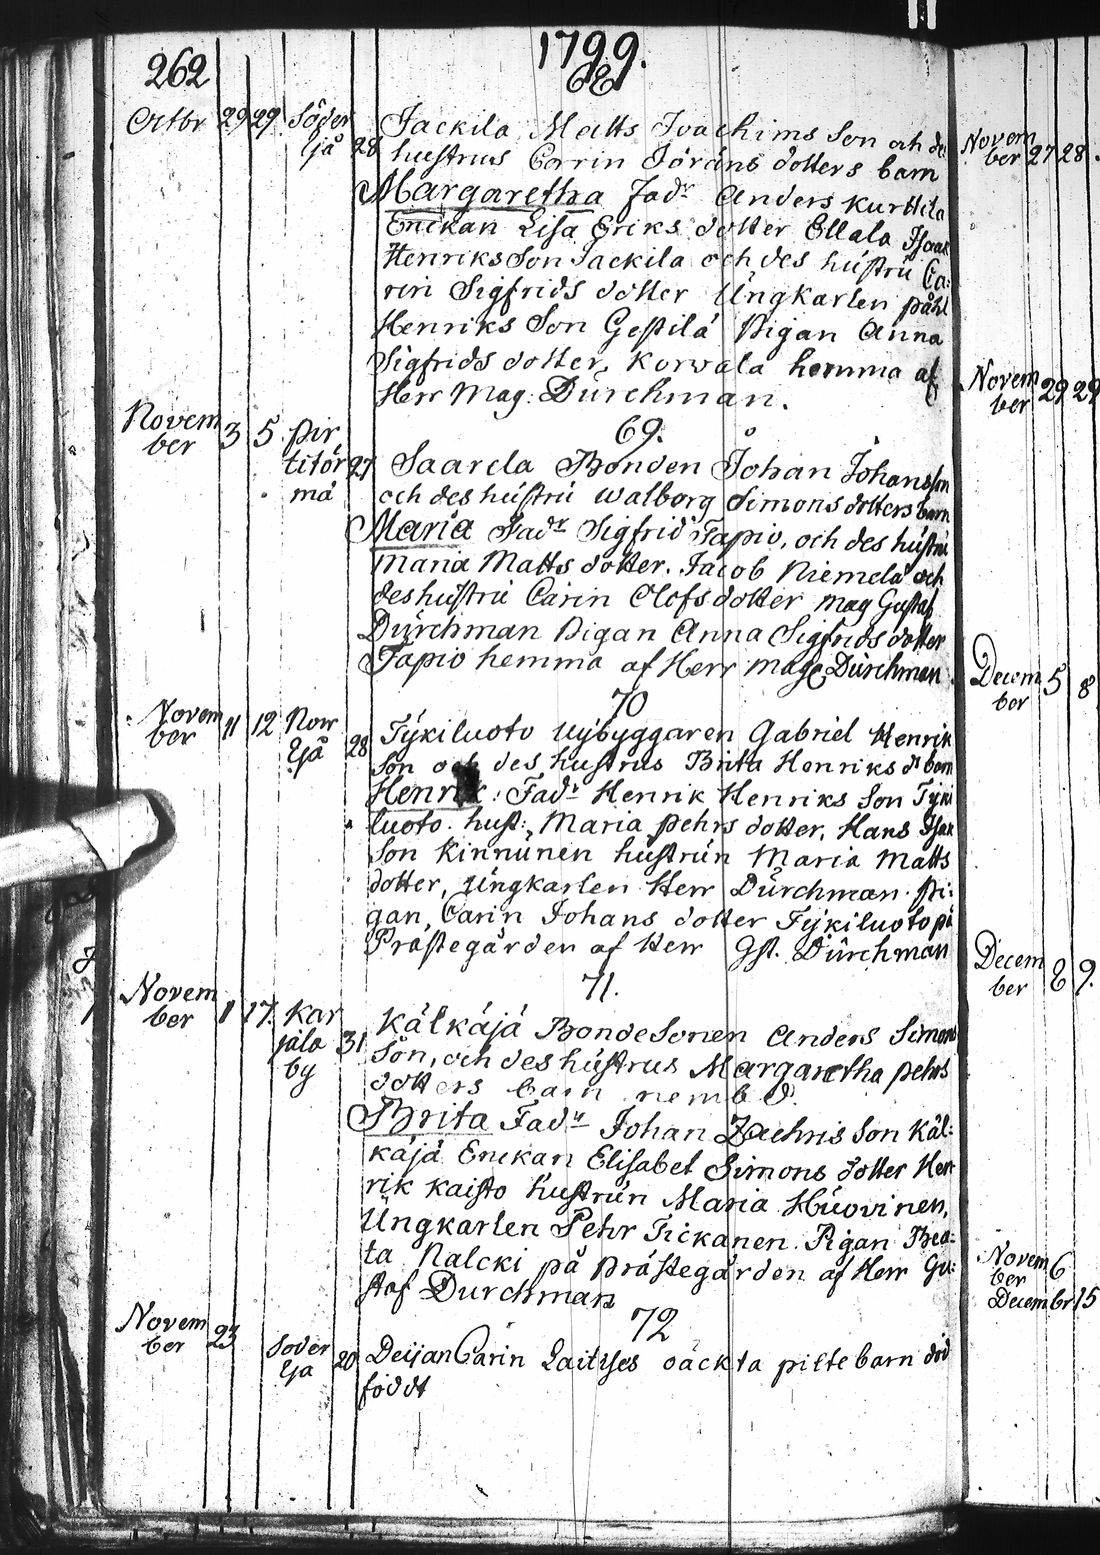 262
1799.
68
Octbr 29 29 Söder
sjå 28
Jackila Matts Joachims Son och des
hustrus Carrin Jörans dotters barn
Margaretha Fadr Anders Kurttila
Enckan Lisa Eriks dotter Ellala Isaac
Henriks Son Jackila och des hustru Ca:
rin Sigfrids dotter Ungkarlen påhl
Henriks Son Gestilä Pigan Anna
Sigfrids dotter, Korwala hemma af
Herr Mag: Durchman.
69.
Novem
ber 3 5 pir
titör
mä 27
Saarela Bonden Johan Johansson
och des hustru Walborg Simons dotters barn
Maria Fadr Sigfrid Tapio, och des hustru
Maria Matts dotter. Jacob Niemelä och
des hustru Carin Olofs dotter Mag Gustaf
Durchman Pigan Anna Sigfrids dotter
Tapio hemma af Herr Mag Durchman
70
Novem
ber 11 12 Norr
sjå 28
Tykiluoto Nybyggaren Gabriel Henrik
Son och des hustrus Brita Henriks dr barn
Henrik: Fadr Henrik Henriks Son Tyki
luoto. hust: Maria pehrs dotter, Hans Isax
Son Kinnunen hustrun Maria Matts
dotter, Ungkarlen Herr Durchman pi:
gan, Carin Johans dotter Tykiluoto på
Prästegården af Herr Gst. Durchman
71.
Novem
ber 11 17. Kar
jala
by 31
Kälkäjä BondeSonen Anders Simons
Son, och des hustrus Margaretha pehrs
dotters barn nembd.
Brita Fadr Johan Zachris Son Käl:
käjä Enckan Elisabet Simons dotter Hen
rik Kaisto hustrun Maria Huovinen,
Ungkarlen Pehr Tickanen. Pigan Brea:
ta Nalcki på prästegården af Herr Gu:
staf Durchman
72
Novem
ber 23 Soder
sja 20
Deijan Carin Laitises oäckta piltebarn död
föddt
Novem
ber 27 28.
Novem
ber 29 29
Decem
ber 5 8
Decem
ber 8 9.
Novem 6
ber
Decembr 15